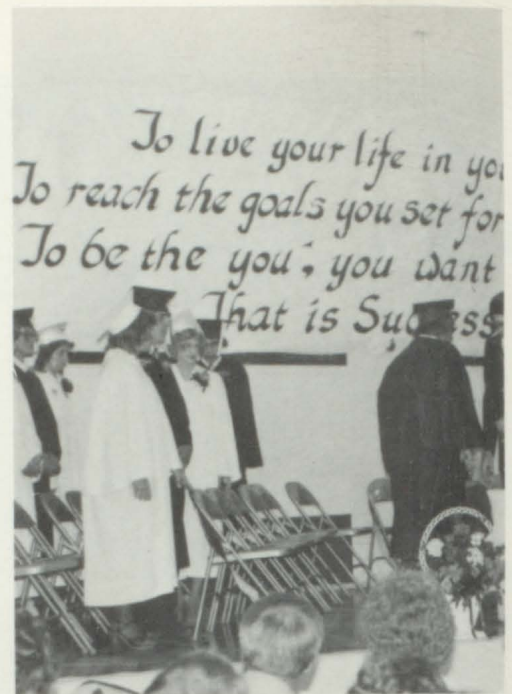 To live your life in
To reach the goals you set for
To be the you, you want
That is Success